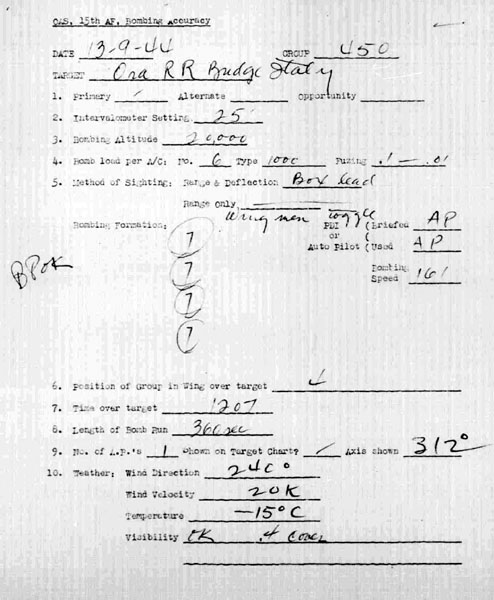 OAS, 15th AF, Bombing Accuracy
DATE 13-9-44 GROUP 450
TARGET Ora RR Bridge Italy
1. Primary ✓ Alternate ___ Opportunity ___
2. Intervalometer Setting 25
3. Bombing Altitude 20,000
4. Bomb load per A/C: No. 6 Type 1000 Fuzing .1 - .01
5. Method of Sighting: Range & Deflection Box lead
Range Only
Wing men toggle
Bombing Formation: PDI (Briefed AP
or (
Auto Pilot (Used AP
7
7
7
7
Bombing Speed 161
BPOK
6. Position of Group in Wing over target 4
7. Time over target 1207
8. Length of Bomb Run 360 sec
9. No. of A.P.'s 1 Shown on Target Chart? ✓ Axis shown 312°
10. Weather: Wind Direction 240°
Wind Velocity 20K
Temperature -15°C
Visibility OK .4 cover